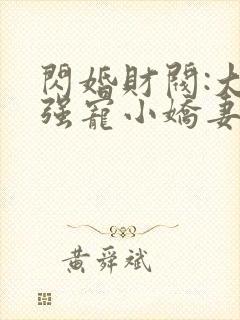 閃婚財閥:大
强寵小嬌妻
黃舜斌